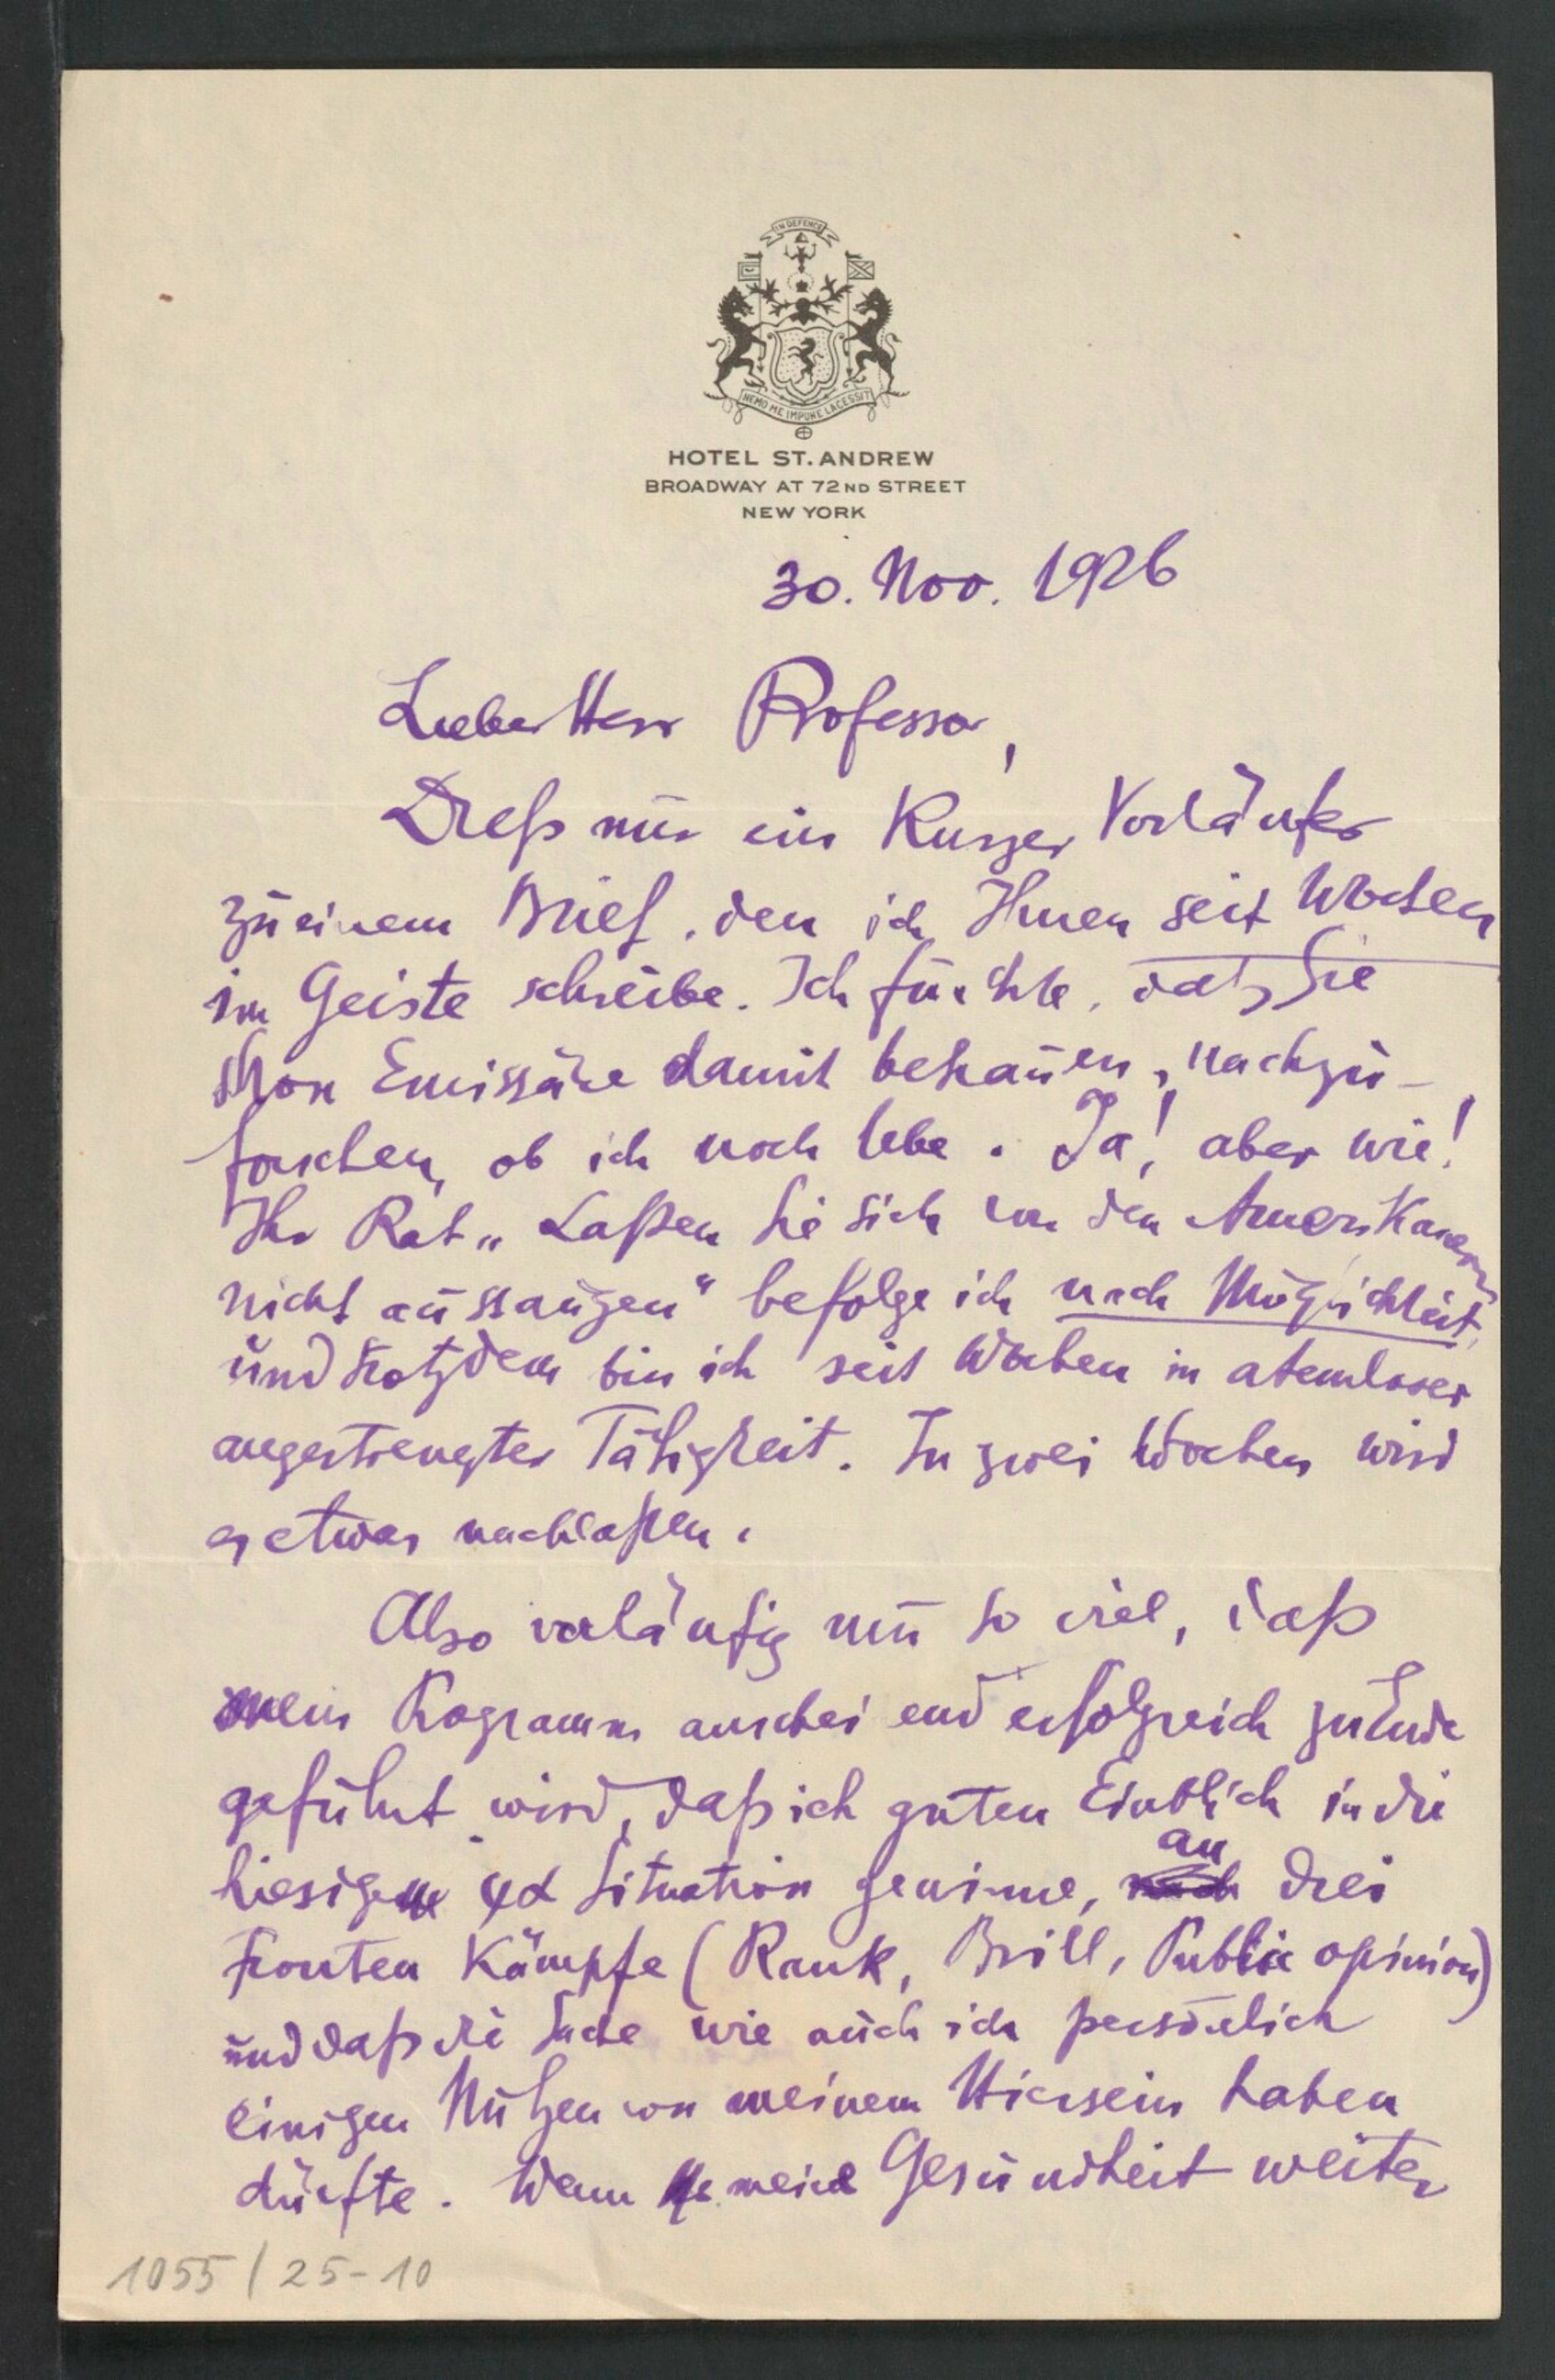 IN DEFENCE
NEMO ME IMPUNE LACESSIT
HOTEL ST. ANDREW
BROADWAY AT 72ND STREET
NEW YORK
30. Nov. 1926
Lieber Herr Professor,
Dieß nur ein Kurzer Vorläufer
zu einem Brief, den ich Ihnen seit Wochen
im Geiste schreibe. Ich fürchte, daß Sie
schon Emissäre damit betrauen, nachzu-
forschen, ob ich noch lebe. Ja! aber wie!
Ihr Rat „Laßen Sie sich von den Amerikanern
nicht aussaugen“ befolge ich nach Möglichkeit,
und trotzdem bin ich seit Wochen in atemloser
angestrengter Tätigkeit. In zwei Wochen wird
es etwas nachlaßen.
Also vorläufig nur so viel, daß
mein Programm anscheinend erfolgreich zu Ende
geführt wird, daß ich guten Einblick in die
hiesige ψα Situation gewinne, an drei
Fronten Kämpfe (Rank, Brill, Public opinion)
und daß die Sache wie auch ich persönlich
einigen Nutzen von meinem Hiersein haben
dürfte. Wenn meine Gesundheit weiter
1055/25-10